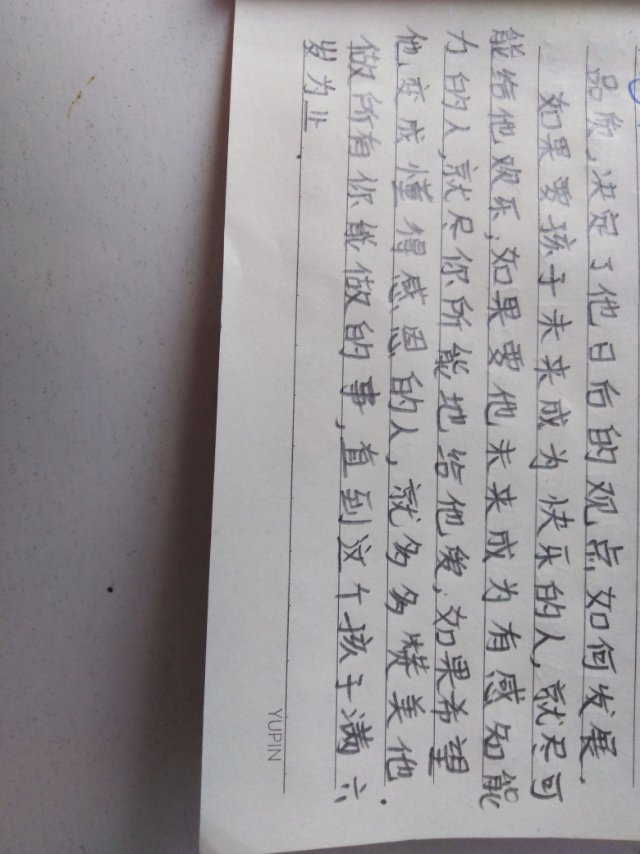 品质,决定了他日后的观点如何发展.
如果要孩子未来成为快乐的人,就尽可
能给他欢乐,如果要他未来成为有感知能
力的人,就尽你所能地给他爱,如果希望
他变成懂得感恩的人,就多多赞美他.
做所有你能做的事,直到这个孩子满六
岁为止.
YUPIN